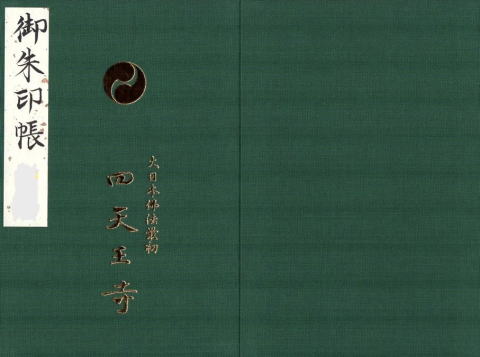 御朱印帳
大日本佛法最初
四天王寺